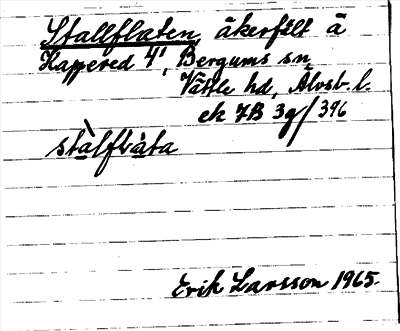 Stallflaten, åkerfält å
Kappered 4¹, Bergums sn
Vättle hd, Älvsb. l.
ek 7B 3g/396
stàlfláta
Erik Larsson 1965.